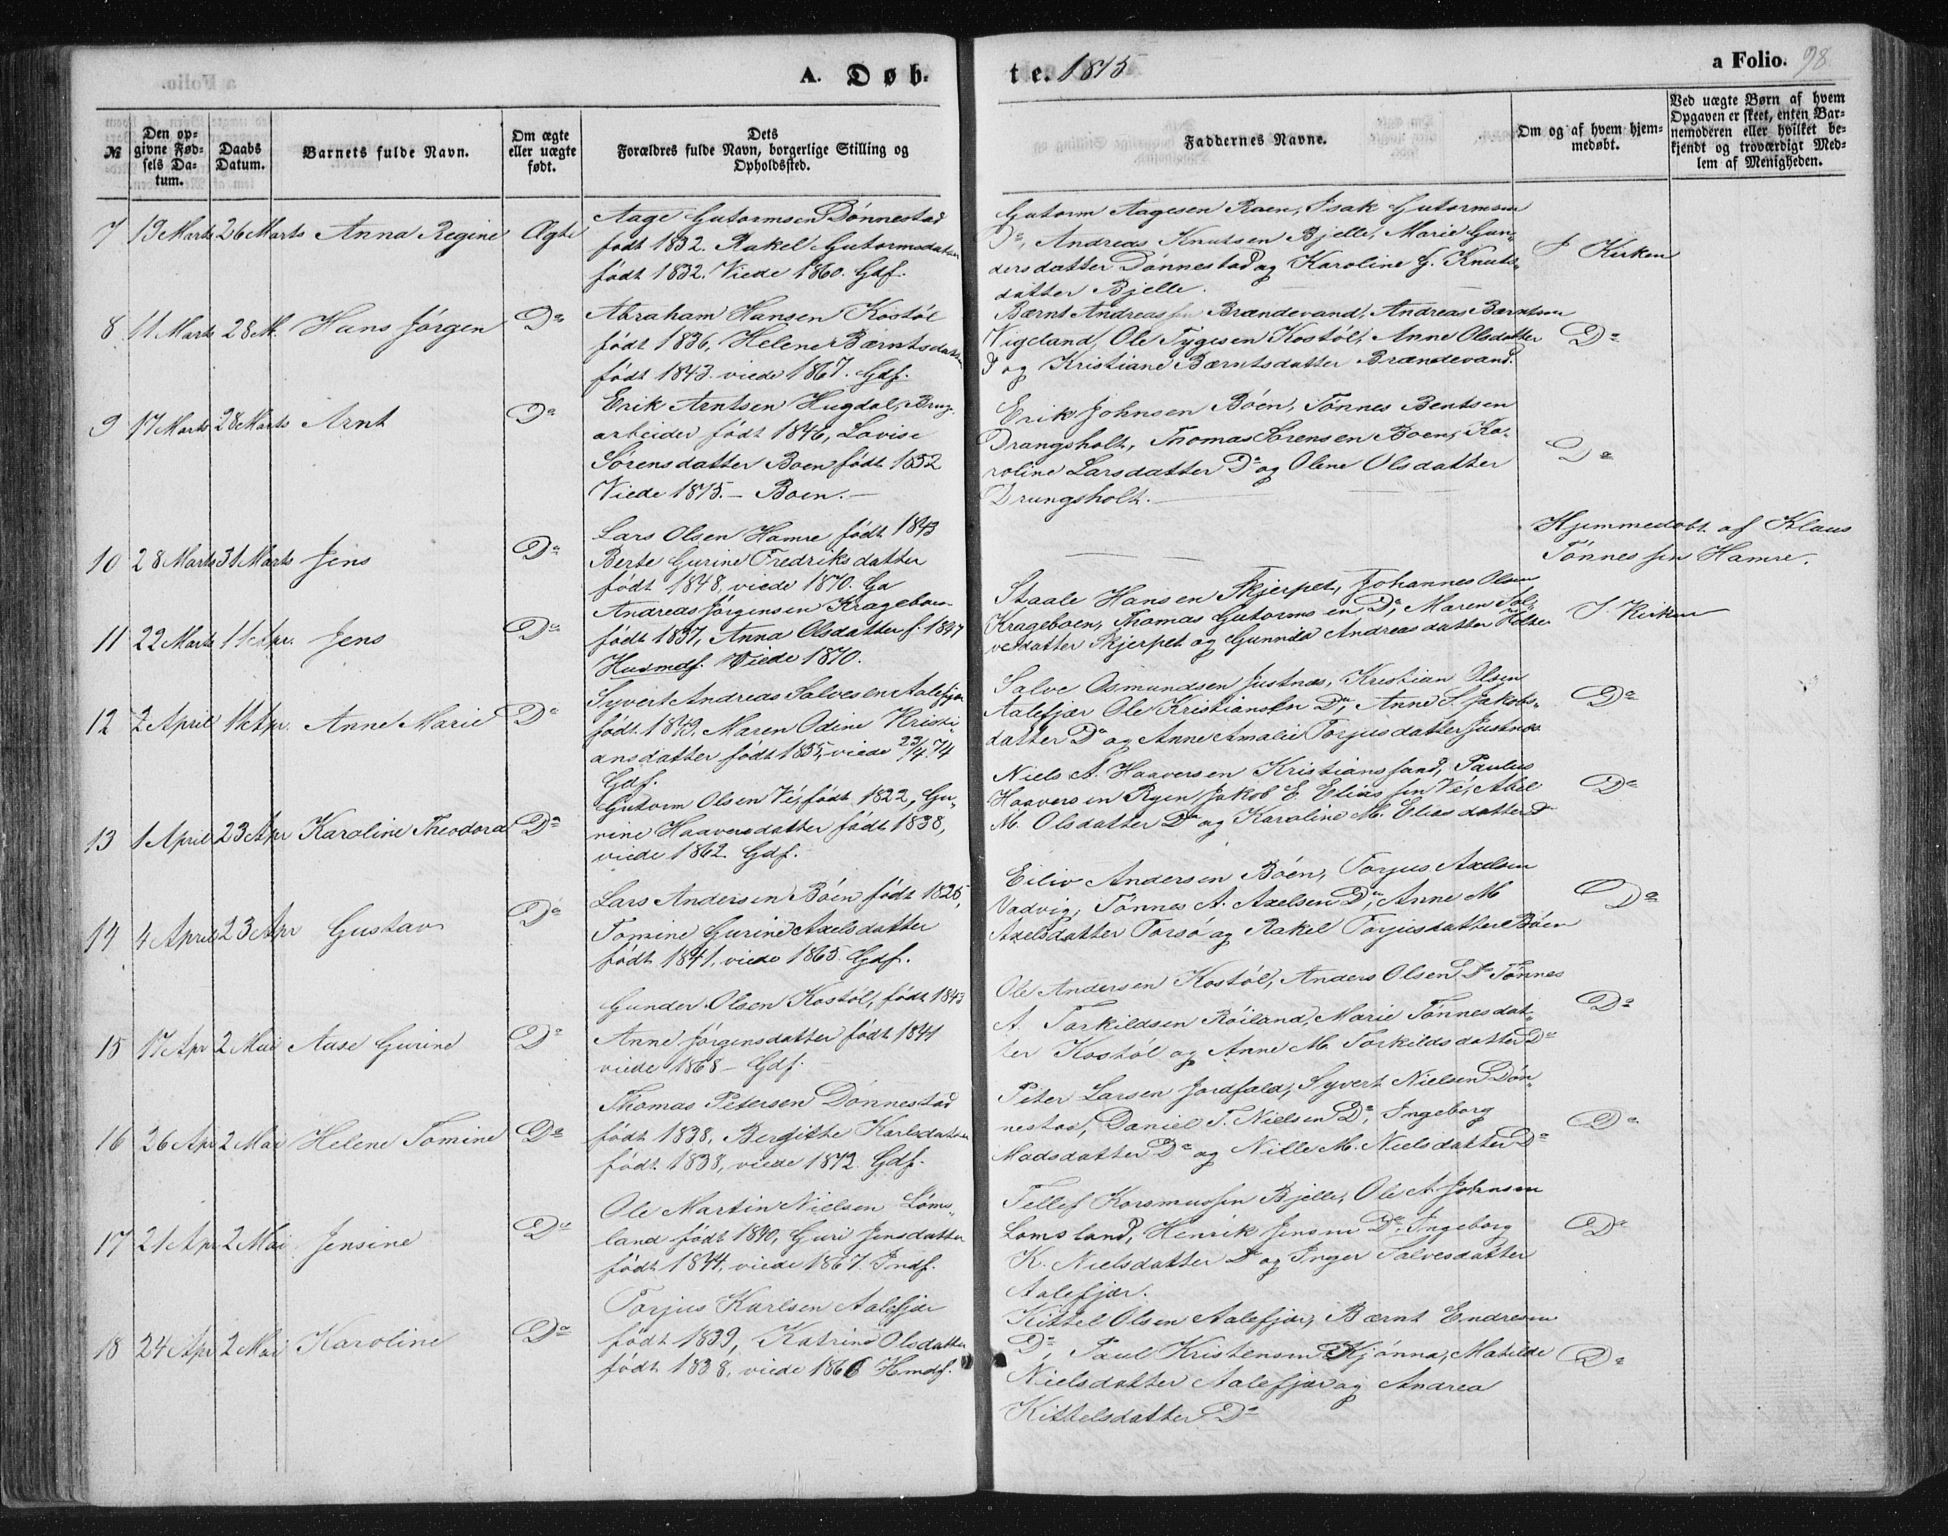 A. Døb-
te. 1875
a Folio. 98
№
Den op-
givne Fød-
sels Da-
tum.
Daabs
Datum.
Barnets fulde Navn.
Om ægte
eller uægte
født.
Dets
Forældres fulde Navn, borgerlige Stilling og
Opholdssted.
Faddernes Navne.
Om og af hvem hjem-
medøbt.
Ved uægte Børn af hvem
Opgaven er skeet, enten Bar-
nemoderen eller hvilket be-
kjendt og troværdigt Med-
lem af Menigheden.
7 13 Marts 26 Marts Anna Regine Ægte
Aage Gutormsen Dønnestad
født 1832. Rakel Gutormsdatter
født 1832. Viede 1860. Gdf.
Gutorm Aagesen Roen, Isak Gutormsen
Do, Andreas Knutsen Bjelle, Marie Gun-
dersdatter Dønnestad og Karoline G. Knuts-
datter Bjelle.
I Kirken
8 11 Marts 28 M. Hans Jørgen Do
Abraham Hansen Kostøl
født 1836, Helene Bærntsdatter
født 1843. viede 1867. Gdf.
Bærnt Andreassen Brændevand, Andreas Bærntsen
Vigeland, Ole Tygesen Kostøl, Anne Olsdatter
D og Kristiane Bærntsdatter Brændevand.
Do
9 17 Marts 28 Marts Arnt Do
Erik Arntsen Hugdal, Brug-
arbeider født 1846, Lovise
Sørensdatter Boen født 1852
Viede 1875. – Boen. –
Erik Johnsen Bøen, Tønnes Bentsen
Drangsholt, Thomas Sørensen Boen, Ka-
roline Larsdatter Do og Olene Olsdatter
Drangsholt. –
Do
10 28 Marts 31 Marts Jens Do
Lars Olsen Hamre født 1843
Berte Gurine Fredriksdatter
født 1848, viede 1870. Gd
Hjemmedøbt af Klaus
Tønnessen Hamre.
11 22 Marts 11 Apr. Jens Do
Andreas Jørgensen Krageboen
født 1837, Anna Olsdatter f. 1847
Husmdf. Viede 1870.
Staale Hansen Skjerpet, Johannes Olsen
Krageboen, Thomas Gutormsen Do, Maren Sal-
vesdatter Skjerpet og Gunnild Andreasdatter Holte
I Kirken
12 2 April 11 Apr. Anne Marie Do
Syvert Andreas Salvesen Aalefjær
født 1849, Maren Odine Kristi-
ansdatter født 1855, viede 23/4 74
Gdf.
Salve Osmundsen Justnæs, Kristian Olsen
Aalefjær Ole Kristiansen Do, Anne S. Jakobs-
datter Do og Anne Amalie Torjusdatter Justnæs
Do
13 1 April 23 Apr Karoline Theodora Do
Gutorm Olsen Ve, født 1822, Gu-
nine Haaversdatter født 1838,
viede 1862. Gdf.
Niels A. Haaversen Kristianssand, Paulus
Haaversen Ryen, Jakob E Eliassen Ve, Abel
M. Olsdatter Do og Karoline M. Eliasdatter D
Do
14 4 April 23 Apr Gustav Do
Lars Andersen Bøen født 1825,
Tomine Gurine Axelsdatter
født 1841, viede 1865. Gdf.
Eiliv Andersen Bøen, Torjus Axelsen
Vadvig, Tønnes A. Axelsen Do, Anne M
Axelsdatter Torsø og Rakel Torjusdatter Bøen
Do
15 17 Apr 2 Mai Aase Gurine Do
Gunder Olsen Kostøl, født 1843
Anne Jørgensdatter født 1844
viede 1868 – Gdf.
Ole Andersen Kostøl, Anders Olsen Do Tønnes
A. Torkildsen Røiland, Marie Tønnesdat-
ter Kostøl og Anne M. Torkildsdatter Do
Do
16 26 Apr 2 Mai Helene Tomine Do
Thomas Petersen Dønnestad
født 1838, Bergithe Karlsdatter
født 1838, viede 1872. Gdf.
Peter Larsen Jordfald, Syvert Nielsen Døn-
nestad, Daniel T. Nielsen Do, Ingeborg
Madsdatter Do og Nille M. Nielsdatter Do
Do
17 21 Apr 2 Mai Jensine Do
Ole Martin Nielsen Løms-
land født 1840, Guri Jensdatter
født 1844, viede 1867. Indf.
Tellef Rorsmussen Bjelle, Ole A. Johnsen
Lomsland, Henrik Jensen Do, Ingeborg
K. Nielsdatter D og Inger Salvesdatter
Aalefjær.
Do
18 24 Apr 2 Mai Karoline Do
Torjus Karlsen Aalefjær
født 1839, Katrine Olsdatter
født 1838, viede 1866 Hmdf.
Kittel Olsen Aalefjær, Bærnt Endresen
Do, Paul Kristensen Kjønna, Matilde
Nielsdatter Aalefjær og Andrea
Kittelsdatter Do
Do